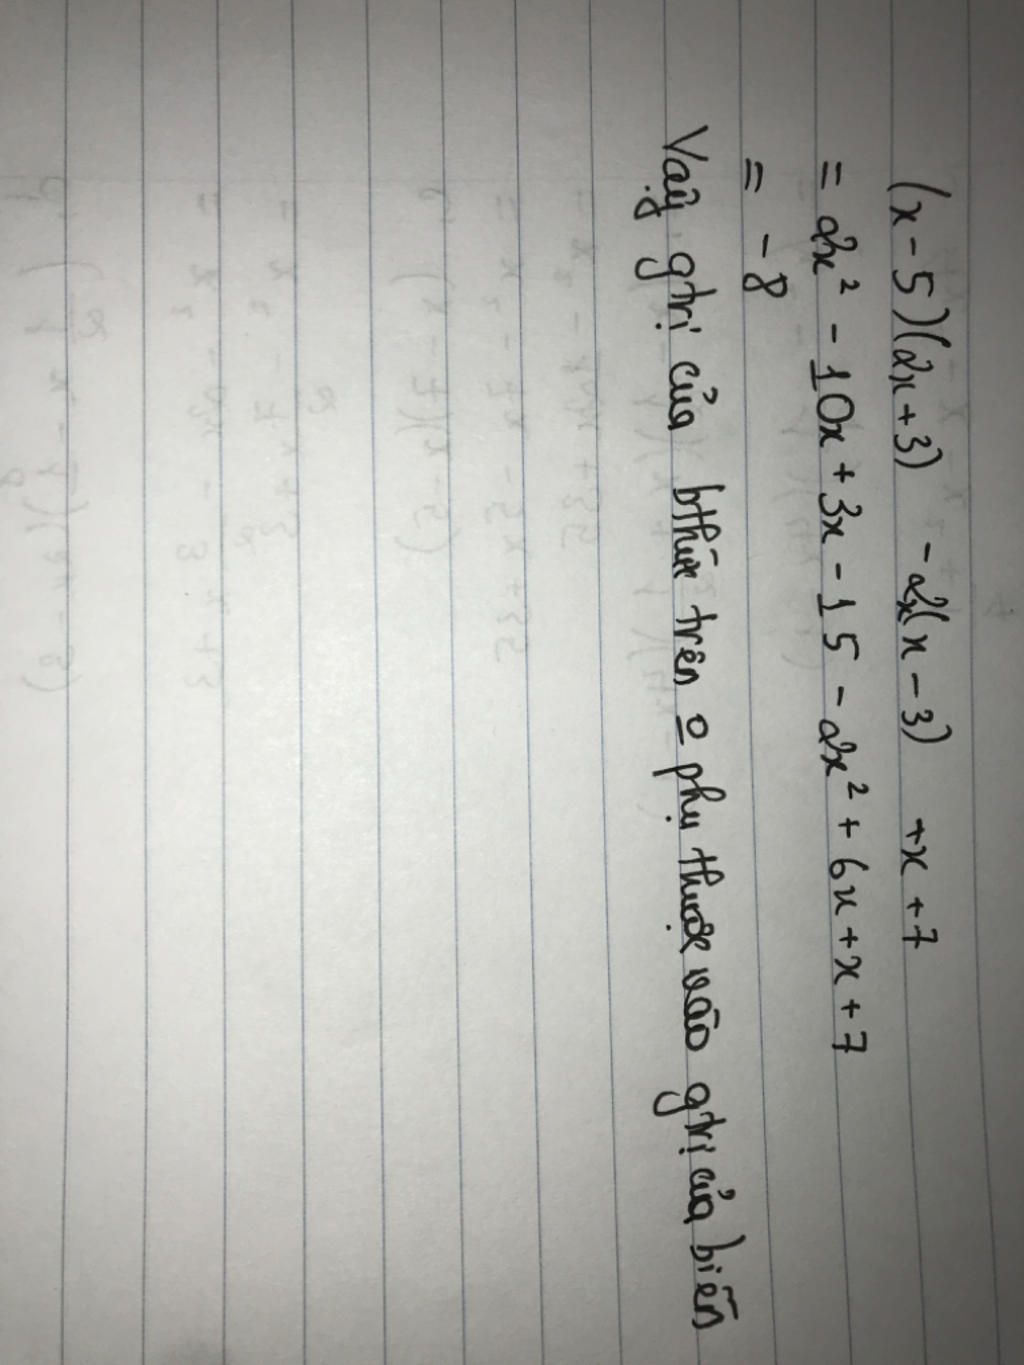 (x - 5)(2x + 3) - 2x(x - 3) + x + 7
= 2x² - 10x + 3x - 15 - 2x² + 6x + x + 7
= - 8
Vậy gtrị của bthức trên o phụ thuộc vào gtrị của biến